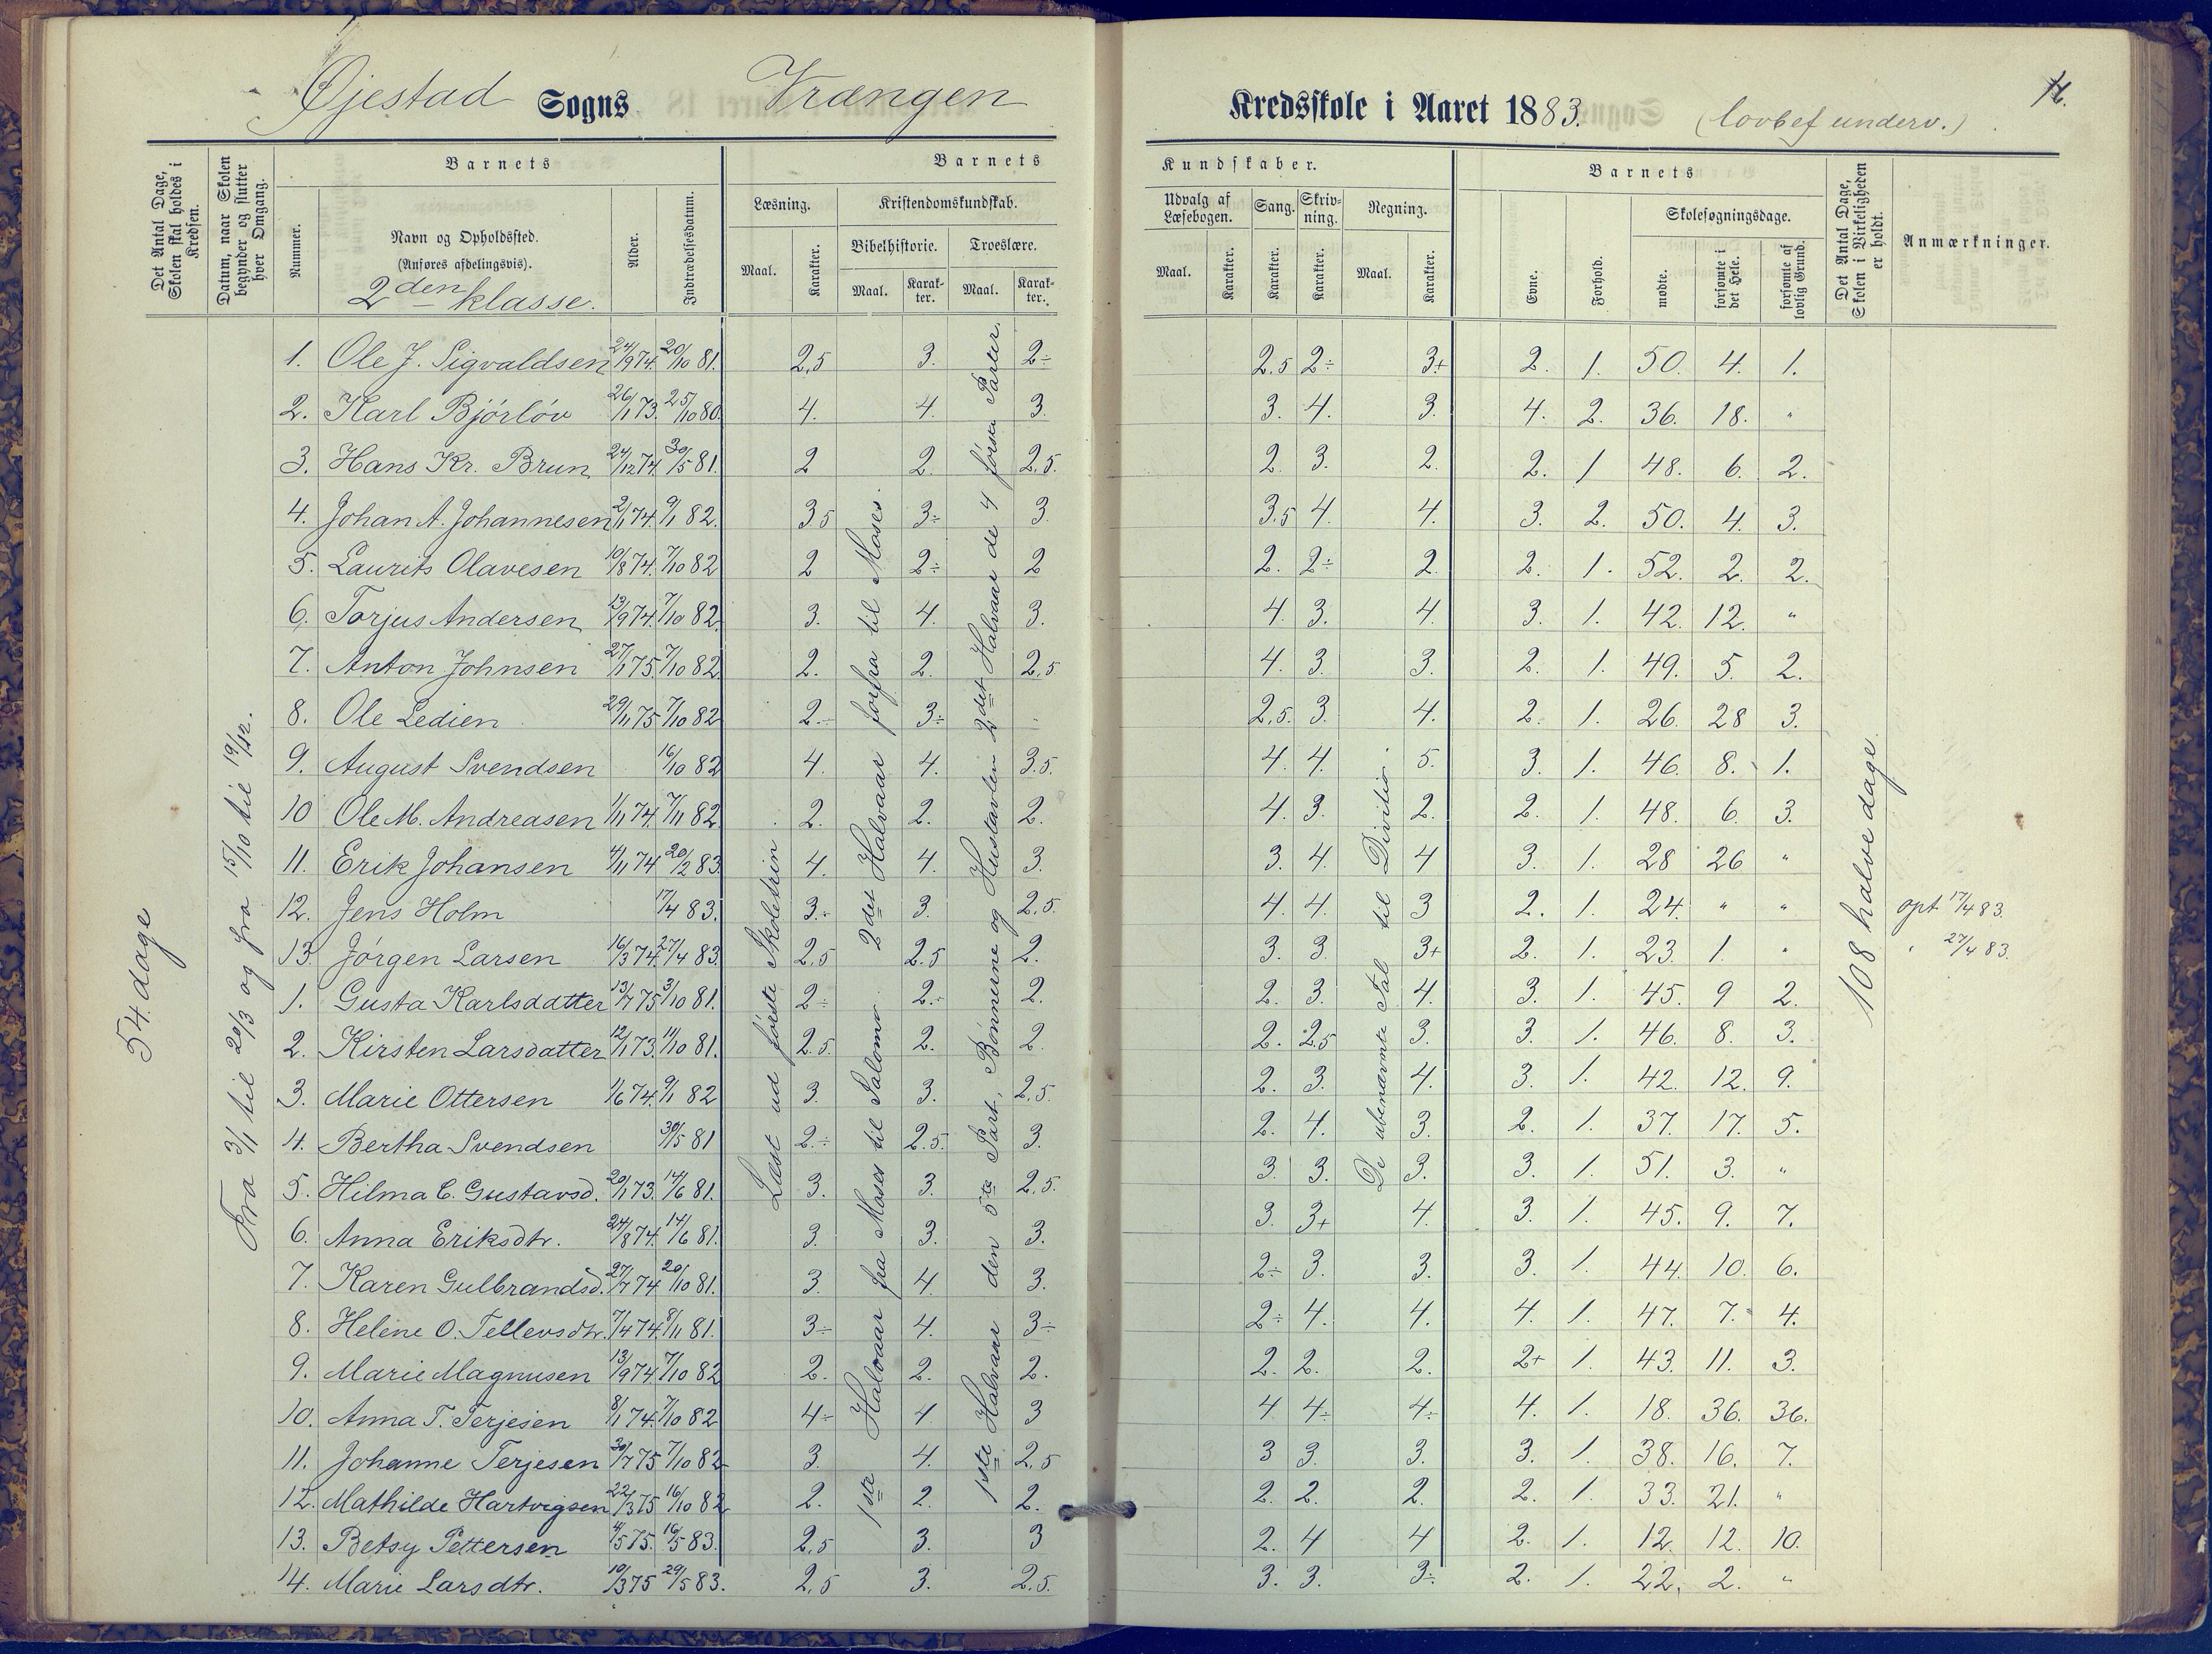 Øjestad Sogns Vrængen Kredsskole i Aaret 1883. (lovbef underv.)
Det Antal Dage, Skolen skal holdes i Kredsen.
Datum, naar Skolen begynder og slutter hver Omgang.
Barnets
Nummer.
Navn og Opholdssted.
(Anføres afdelingsvis).
2den klasse.
Alder.
Indtrædelsesdatum.
Barnets Kundskaber.
Læsning. Kristendomskundskab. Udvalg af Læsebogen. Sang. Skrivning. Regning.
Bibelhistorie. Troeslære.
Maal. Karakter. Maal. Karakter. Maal. Karakter. Maal. Karakter. Karakter. Karakter. Maal. Karakter.
Barnets
Evne. Forhold. Skolesøgningsdage.
mødte. forsømte i det Hele. forsømte af lovlig Grund.
Det Antal Dage, Skolen i Virkeligheden er holdt.
Anmærkninger.
54 dage
Fra 3/1 til 20/3 og fra 15/10 til 19/12.
Læst ud første Skoletrin
1ste Halvaar fra Moses til Salomo. 2det Halvaar forfra til Moses.
1ste Halvaar den 5te Part, Bønnerne og Hustavlen 2det Halvaar de 4 første Parter.
De ubenævnte Tal til Division.
108 halve dage
1. Ole J. Sigvaldsen 24/9 74. 20/10 81. 2,5 3. 2÷ 2,5 2÷ 3+ 2. 1. 50. 4. 1.
2. Karl Bjørløv 26/1 73. 25/10 80. 4. 4. 3. 3. 4. 3. 4. 2. 36. 18. "
3. Hans Kr. Brun 24/12 74. 30/5 81. 2 2. 2,5. 2. 3. 2. 2. 1 48. 6. 2.
4. Johan A. Johannesen 2/1 74. 9/1 82. 3,5 3÷ 3. 3,5 4. 4. 3. 2. 50. 4. 3.
5. Laurits Olavesen 10/8 74. 7/10 82 2 2÷ 2 2. 2÷ 2. 2. 1. 52. 2. 2.
6. Torjus Andersen 13/9 74. 7/10 82. 3. 4. 3. 4. 3. 4. 3. 1. 42. 12. "
7. Anton Johnsen 27/1 75. 7/10 82 2. 2. 2,5 4. 3. 3. 2. 1. 49. 5. 2.
8. Ole Ledien 29/11 75 7/10 82 2÷ 3÷ 2,5. 3. 4. 2. 1. 26. 28 3.
9. August Svendsen 16/10 82 4. 4. 3.5. 4. 4. 5. 3. 1. 46. 8. 1.
10 Ole M. Andreasen 1/11 74. 7/11 82. 2. 2. 2. 4. 3. 2. 2. 1. 48. 6. 3.
11. Erik Johansen 4/11 74 20/2 83. 4. 4. 3. 3. 4. 4 3. 1. 28 26 "
12. Jens Holm 17/4 83. 3÷ 3. 2,5. 4. 4. 3 2. 1. 24. " " opt 17/4 83.
13. Jørgen Larsen 16/3 74. 27/4 83. 2,5 2.5 2. 3. 3. 3+ 2. 1. 23. 1. " " 27/4 83.
1. Gusta Karlsdatter 13/7 75 3/10 81. 2÷ 2÷ 2. 2. 3. 4. 3. 1. 45. 9 2.
2. Kirsten Larsdatter 12/1 73. 11/10 81. 2.5. 2. 2. 2. 2.5 3. 3. 1. 46. 8. 3.
3. Marie Ottersen 1/6 74. 9/1 82 3. 3. 2,5. 2. 3. 4. 3. 1. 42. 12. 9.
4. Bertha Svendsen 30/5 81 2÷ 2.5. 3. 2. 4. 3. 2. 1. 37. 17. 5.
5. Hilma C. Gustavsd. 20/1 73. 14/6 81. 3. 3. 2,5. 3. 3. 3. 3. 1. 51. 3. "
6. Anna Eriksdtr. 24/8 74. 14/6 81. 3. 3. 3. 3. 3+ 4. 3. 1. 45. 9. 7.
7. Karen Gulbrandsd. 27/7 74. 20/10 81. 3. 4. 3. 2÷ 3. 3. 3. 1. 44. 10. 6.
8. Helene O. Tellevsdtr. 7/4 74. 8/11 81. 3÷ 4. 3÷ 2÷ 4. 4. 4. 1. 47. 7. 4.
9. Marie Magnusen 13/9 74. 7/10 82 2. 2. 2. 2. 2. 2. 2+ 1. 43. 11. 3.
10. Anna T. Terjesen 8/1 74. 7/10 82 4÷ 4. 3 4 4÷ 4÷ 4. 1. 18. 36. 36.
11. Johanne Terjesen 30/7 75 7/10 82 3. 4. 2,5 3 3. 3. 3. 1. 38. 16. 7.
12. Mathilde Hartvigsen 22/3 75 16/10 82 2. 2. 2. 2. 2. 2. 2. 1. 33. 21. "
13. Betsy Pettersen 4/5 75. 16/5 83. 2,5 3. 3 2. 4 4 2. 1. 12. 12. 10.
14. Marie Larsdtr. 10/3 75 29/5 83. 2,5 3. 2,5. 3. 3. 3÷ 2. 1. 22. 2. "